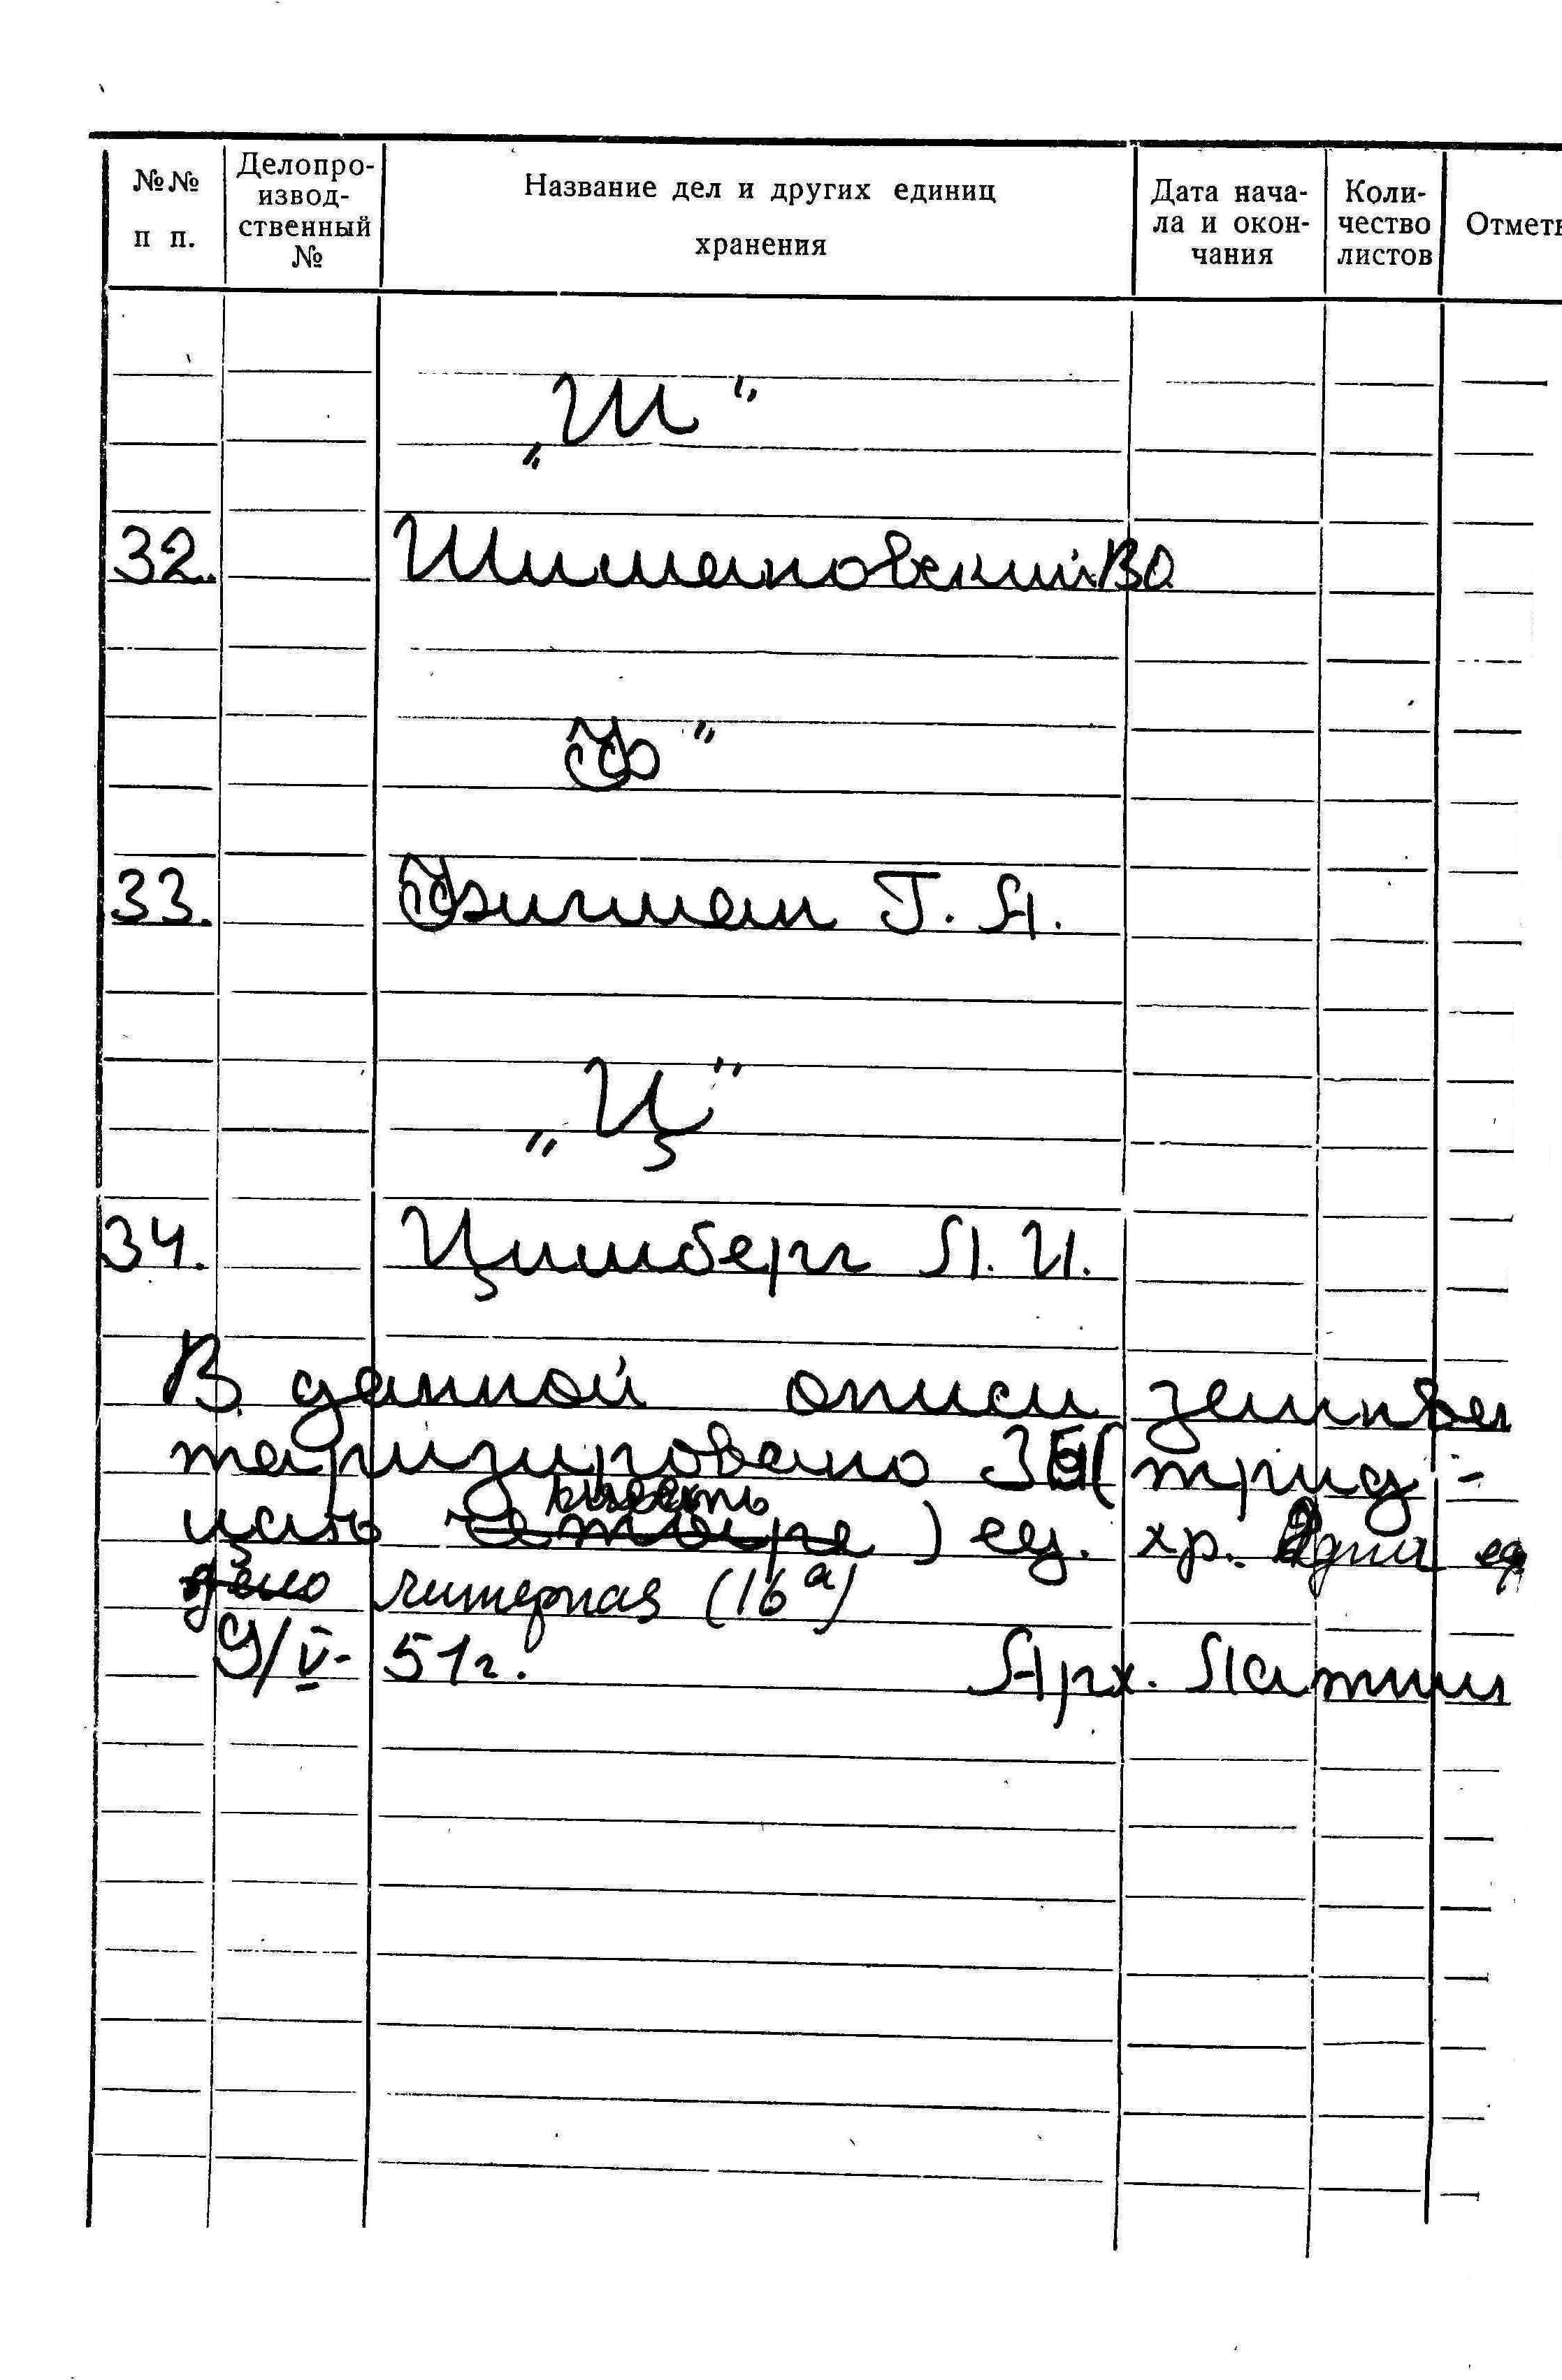 №№ п п.
Делопро-
извод-
ственный
№
Название дел и других единиц
хранения
Дата нача-
ла и окон-
чания
Коли-
чество
листов
Отмет
„Ш“
32. Шимановский В О.
Ф“
33. Фигман Г. А.
„Ц“
34. Цимберг Л. И.
В данной описи заинвен
таризировано 3 (трид-
шесть
цать четыре) ед. хр. Одна ед
дело литерная (16а)
9/V- 51г. Арх. Латыш